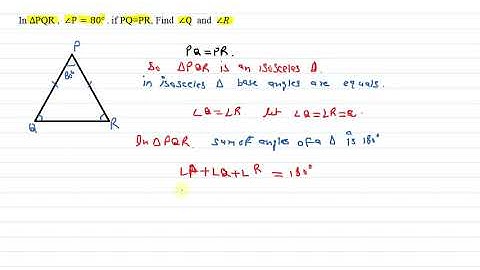 In ΔPQR , ∠P = 80° , if PQ=PR, Find ∠Q and ∠R
P
80°
Q
R
PQ = PR.
So ΔPQR is an isosceles Δ.
in isosceles Δ base angles are equals.
∠Q = ∠R let ∠Q = ∠R = a
In ΔPQR. sum of angles of a Δ is 180°
∠P + ∠Q + ∠R = 180°